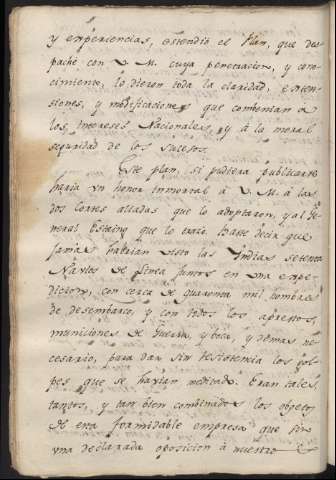 y experiencias, estendió el Plan, que des
paché con V. M. cuya penetracion, y cono
cimiento, le dieron toda la claridad, exten
siones, y modificaciones que combenian a
los intereses Nacionales, y á la moral
seguridad de los sucesos.
Este plan, si pudiera publicarse
haria un honor inmortal á V. M. á las
dos Cortes aliadas que lo adoptaron, y al Ge
neral Estaing que lo traxo. Baste decir que
jamas habrian visto las Indias setenta
Navios de linea juntos en una expe
dicion, con cerca de quarenta mil hombres
de desembarco, y con todos los aprestos,
municiones de guerra, y boca, y demas ne
cesario, para dar sin resistencia los gol
pes que se havian meditado. Eran tales,
tantos, y tan bien combinados los objetos
de esta formidable empresa que sin
una declarada oposicion á nuestro